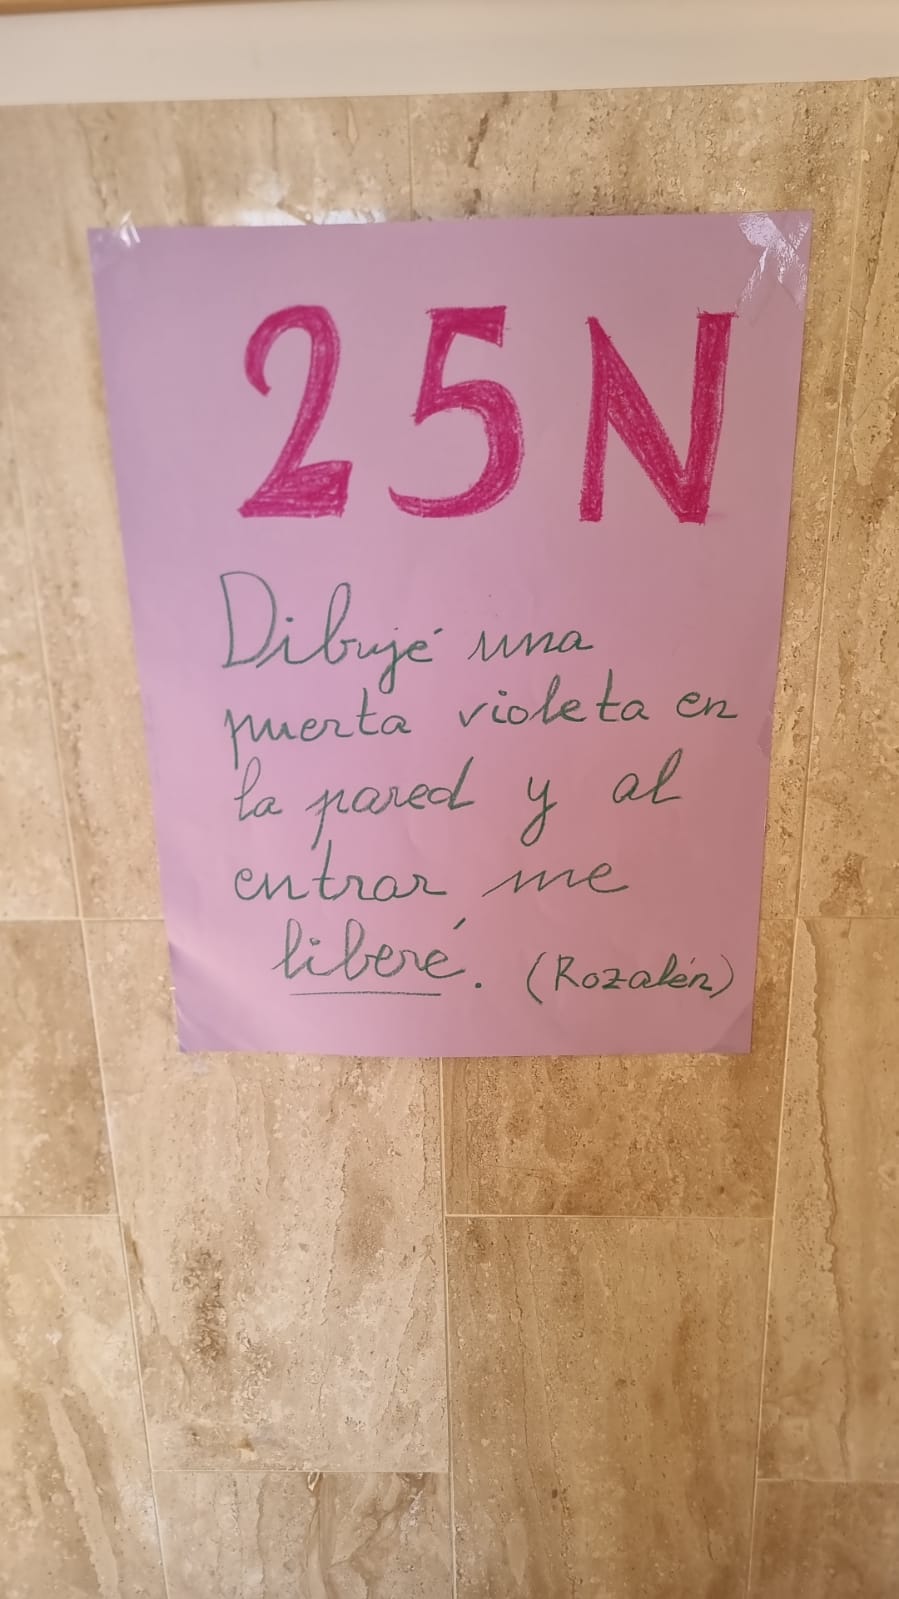 25N
Dibujé una
puerta violeta en
la pared y al
entrar me
liberé. (Rozalén)